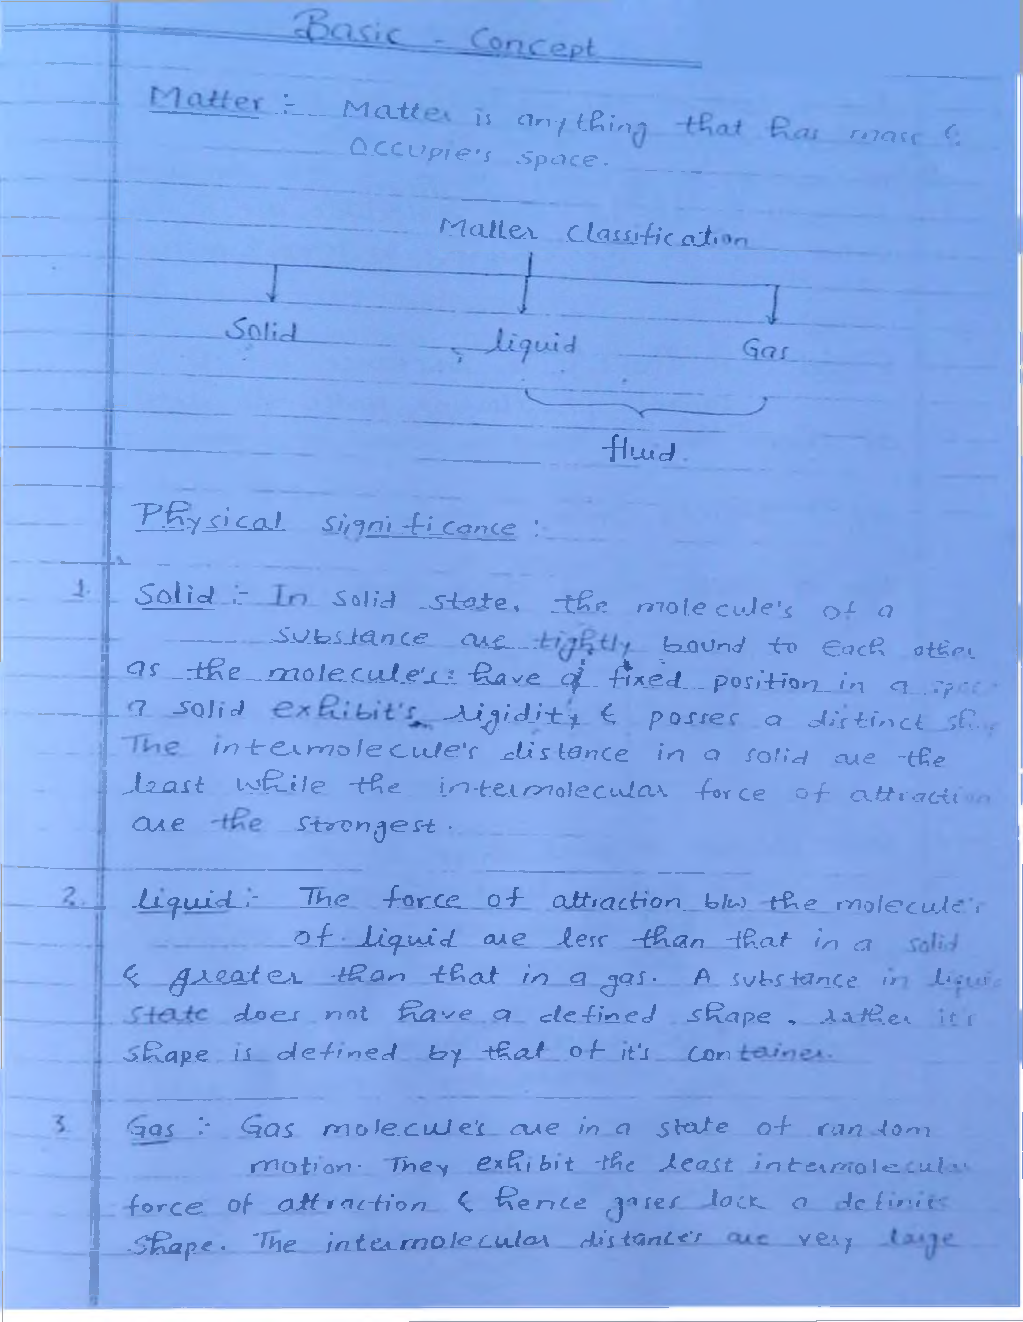 Basic - Concept
Matter :- Matter is anything that has mass &
Occupie's space.
Matter Classification
Solid liquid Gas
fluid.
Physical significance :
1. Solid :- In solid state, the molecule's of a
substance are tightly bound to each other
as the molecule's have a fixed position in a
a solid exhibit's rigidity & posses a distinct
The intermolecule's distance in a solid are the
least while the intermolecular force of attraction
are the strongest.
2. liquid :- The force of attraction b/w the molecule's
of liquid are less than that in a solid
& greater than that in a gas. A substance in liquid
state does not have a defined shape, rather it's
shape is defined by that of it's container.
3. Gas :- Gas molecule's are in a state of random
motion. They exhibit the least intermolecular
force of attraction & hence gases lack a definite
shape. The intermolecular distance's are very large